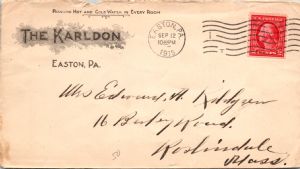 Running Hot and Cold Water in Every Room
THE KARLDON
EASTON, PA.
EASTON, PA.
SEP 12
10 PM
1915
Mrs Edward H.
16 Road.
Roslindale
Mass.
50